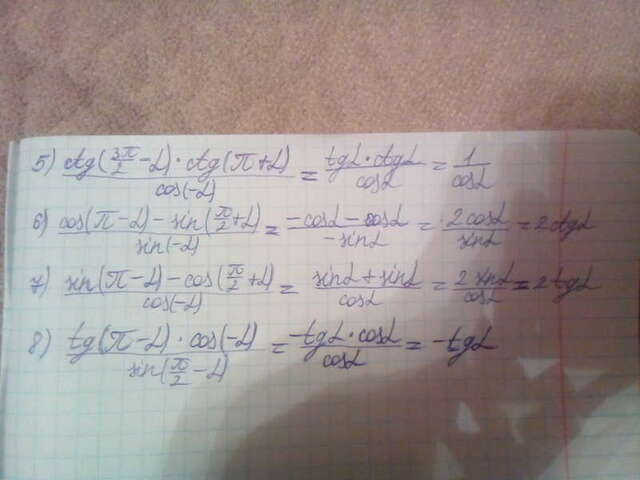 5) ctg(3π/2 - α) · ctg(π + α) / cos(-α) = tgα · ctgα / cosα = 1 / cosα
6) cos(π - α) - sin(π/2 + α) / sin(-α) = -cosα - cosα / -sinα = 2cosα / sinα = 2ctgα
7) sin(π - α) - cos(π/2 + α) / cos(-α) = sinα + sinα / cosα = 2sinα / cosα = 2tgα
8) tg(π - α) · cos(-α) / sin(π/2 - α) = -tgα · cosα / cosα = -tgα